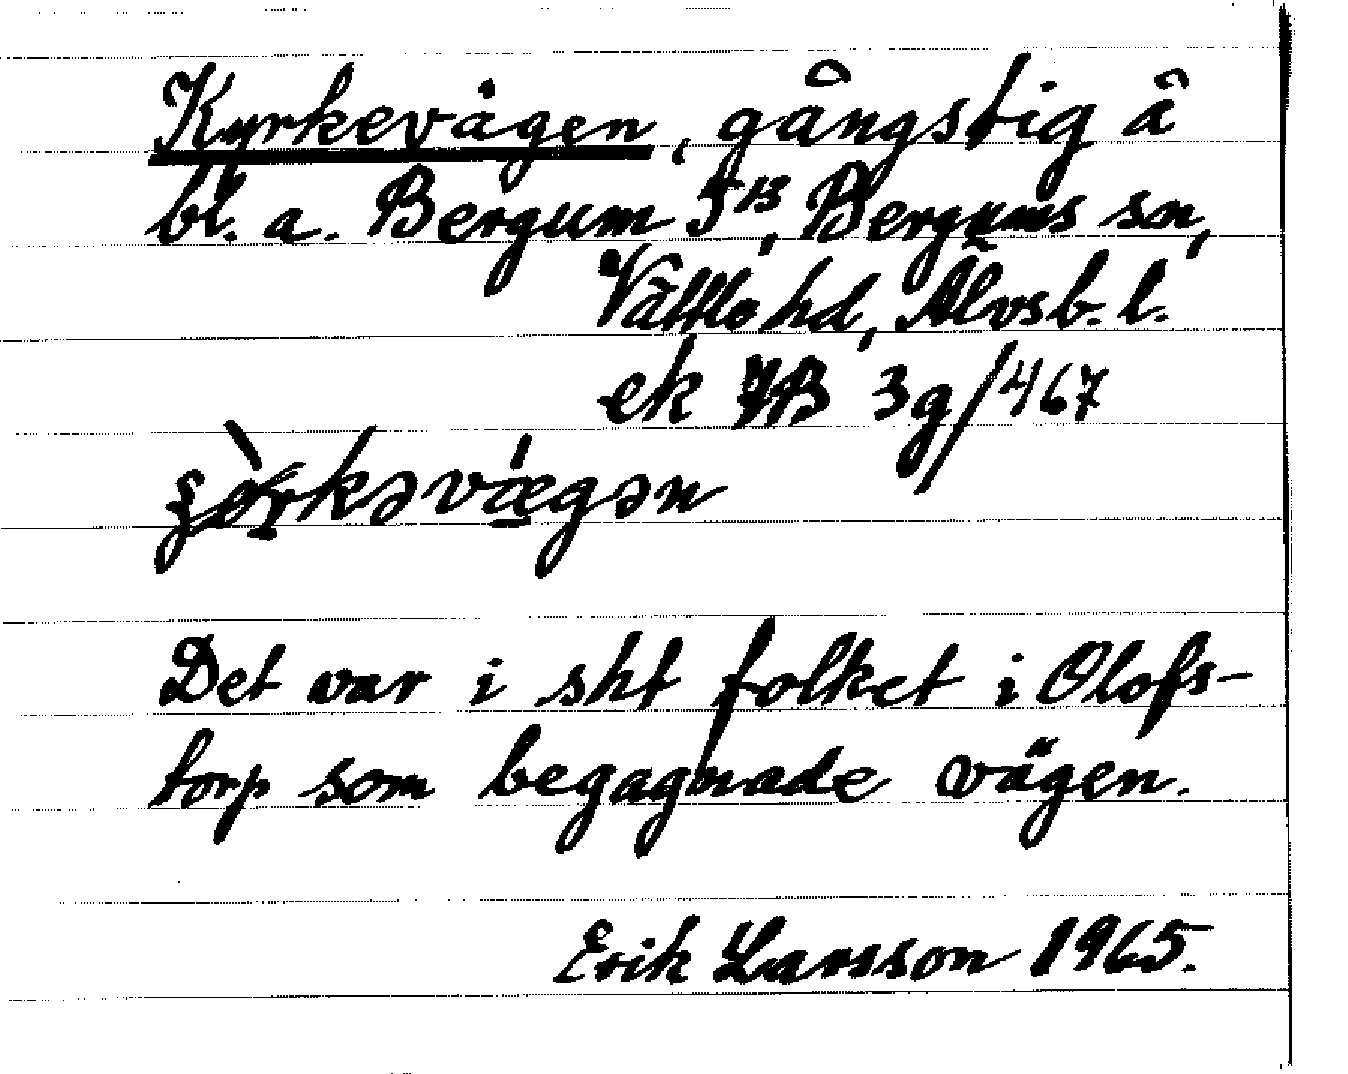 Kyrkevägen, gångstig å
bl. a. Bergum 5¹³, Bergums sn,
Vättle hd, Älvsb. l.
ek 7B 3g/467
Det var i sht folket i Olofs-
torp som begagnade vägen.
Erik Larsson 1965.